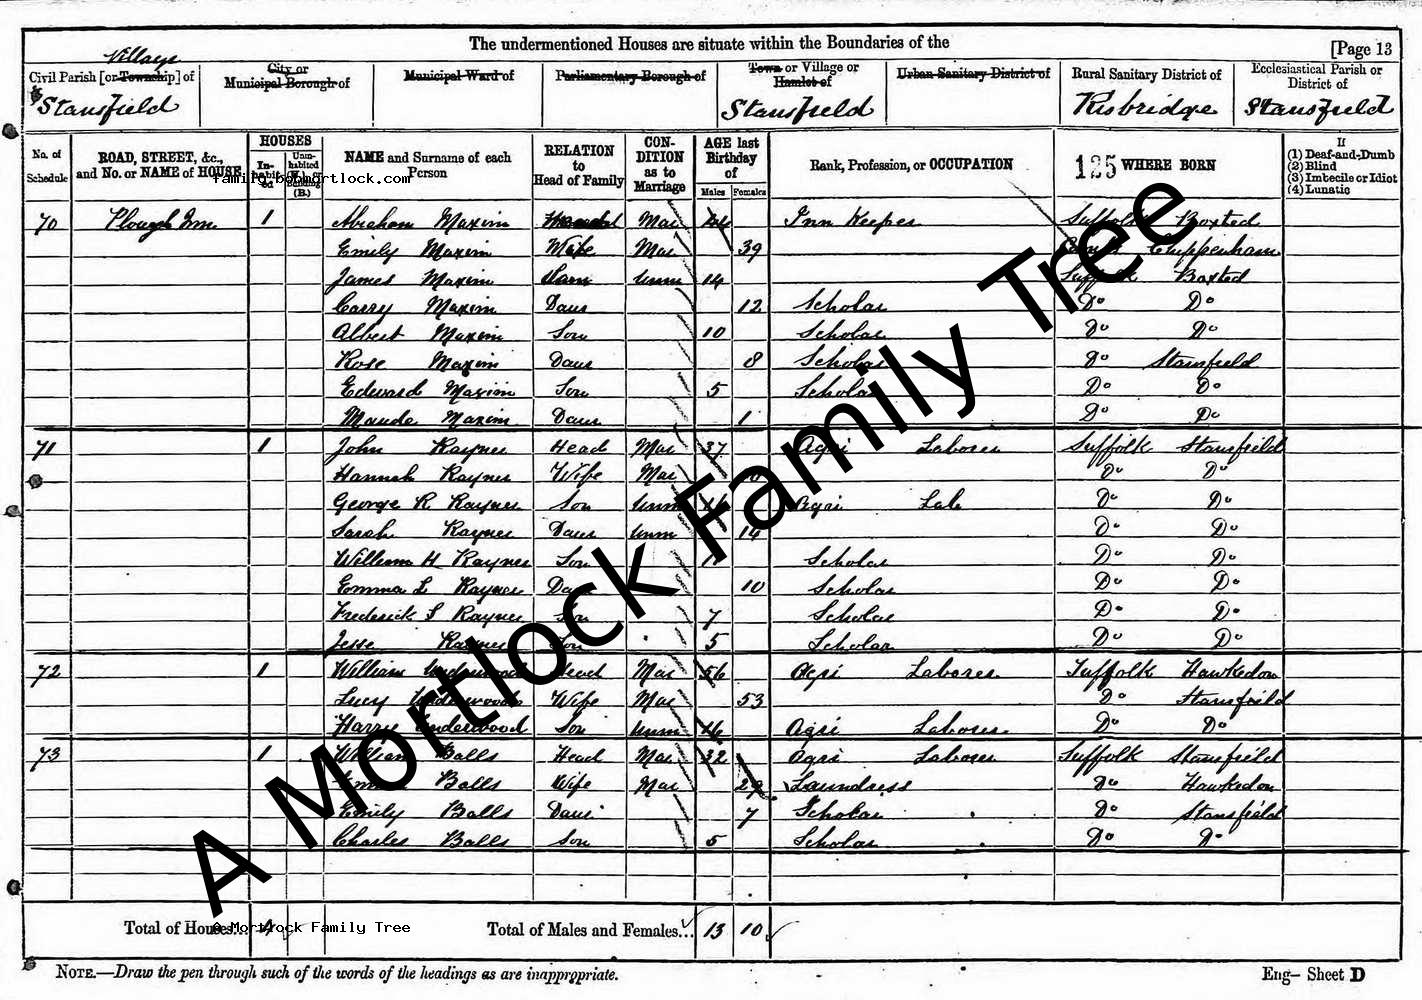 The undermentioned Houses are situate within the Boundaries of the [Page 13
Village
Civil Parish [or Township] of City or Municipal Borough of Municipal Ward of Parliamentary Borough of Town or Village or Hamlet of Urban Sanitary District of Rural Sanitary District of Ecclesiastical Parish or District of
Stansfield Stansfield Risbridge Stansfield
No. of Schedule ROAD, STREET, &c., and No. or NAME of HOUSE HOUSES Inhabited Uninhabited (U.), or Building (B.) NAME and Surname of each Person RELATION to Head of Family CONDITION as to Marriage AGE last Birthday of Males Females Rank, Profession, or OCCUPATION 125 WHERE BORN If (1) Deaf-and-Dumb (2) Blind (3) Imbecile or Idiot (4) Lunatic
family.bobmortlock.com
70 Plough Inn 1 Abraham Maxim Head Mar 44 Inn Keeper Suffolk Boxted
Emily Maxim Wife Mar 39 Chippenham
James Maxim Unm 14 Suffolk Boxted
Carry Maxim Daur 12 Scholar Do Do
Albert Maxim Son 10 Scholar Do Do
Rose Maxim Daur 8 Scholar Do Stansfield
Edward Maxim Son 5 Scholar Do Do
Maude Maxim Daur 1 Do Do
71 1 John Rayner Head Mar 37 Agri Laborer Suffolk Stansfield
Hannah Rayner Wife Mar Do Do
George R Rayner Son Unm 16 Agri Lab Do Do
Sarah Rayner Daur Unm 14 Do Do
William H Rayner Son Scholar Do Do
Emma L Rayner Daur 10 Scholar Do Do
Frederick S Rayner Son 7 Scholar Do Do
Jesse Rayner Son 5 Scholar Do Do
72 1 William Underwood Head Mar 56 Agri Laborer Suffolk Hawkedon
Lucy Underwood Wife Mar 53 Do Stansfield
Harry Underwood Son Unm 16 Agri Laborer Do Do
73 1 William Balls Head Mar 32 Agri Laborer Suffolk Stansfield
Balls Wife Mar 29 Laundress Do Hawkedon
Emily Balls Daur 7 Scholar Do Stansfield
Charles Balls Son 5 Scholar Do Do
A Mortlock Family Tree
Total of Houses... 4 Total of Males and Females... 13 10
A Mortlock Family Tree
NOTE.—Draw the pen through such of the words of the headings as are inappropriate. Eng— Sheet D